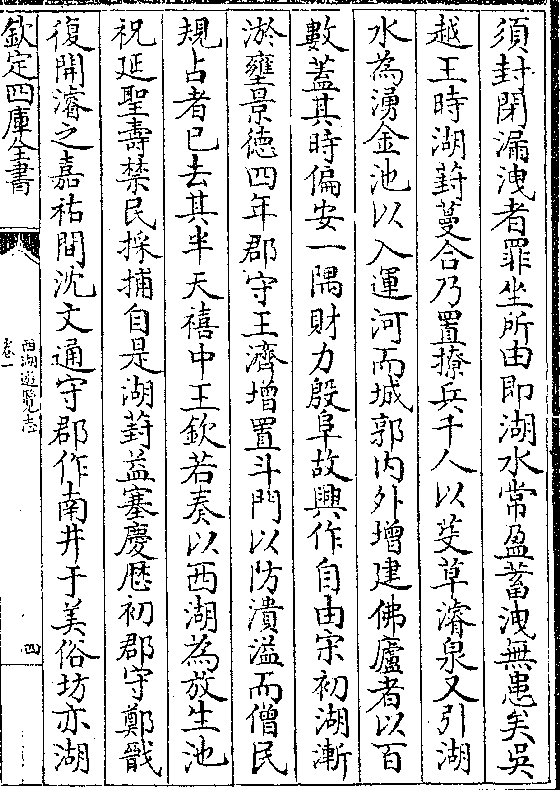 須封閉漏洩者罪坐所由即湖水常盈蓄洩無患矣吳
越王時湖葑蔓合乃置撩兵千人以芟草濬泉又引湖
水為湧金池以入運河而城郭内外增建佛廬者以百
數蓋其時偏安一隅財力殷阜故興作自由宋初湖漸
淤壅景徳四年郡守王濟增置斗門以防潰溢而僧民
規占者已去其半天禧中王欽若奏以西湖為放生池
祝延聖壽禁民採捕自是湖葑益塞慶厯初郡守鄭戩
復開濬之嘉祐間沈文通守郡作南井于美俗坊亦湖
欽定四庫全書
西湖遊覽志
卷一
四